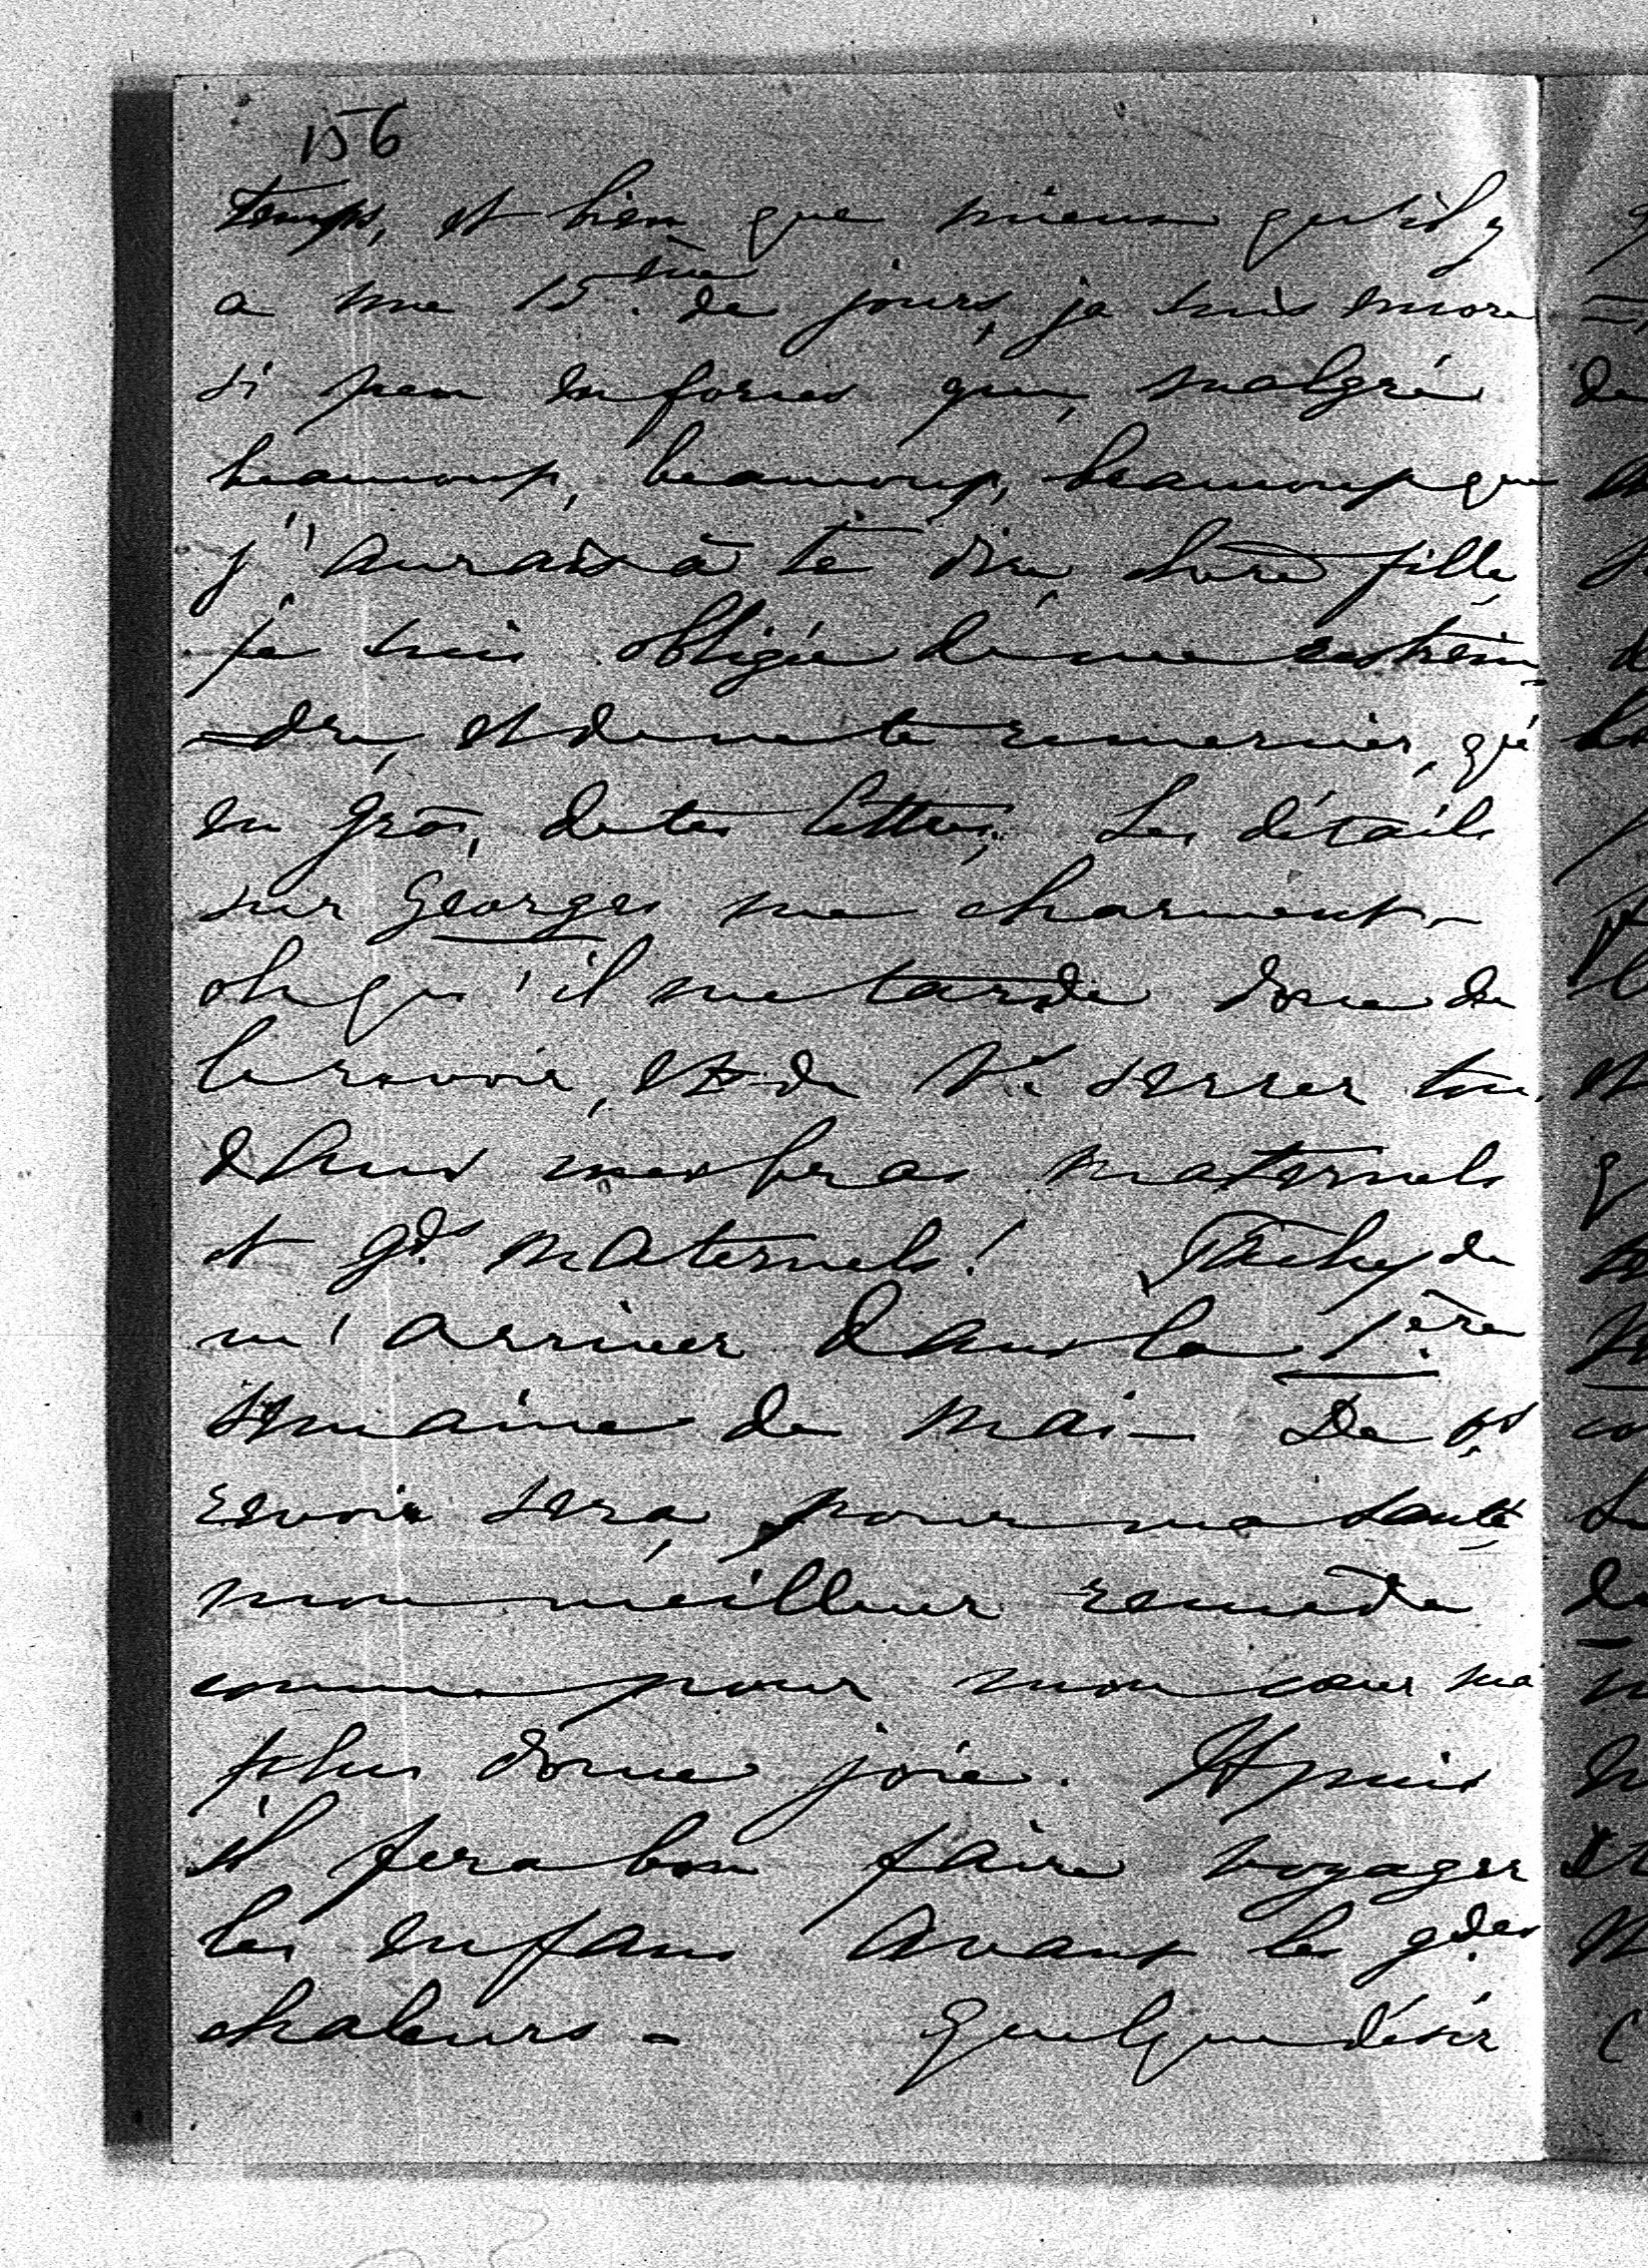 156
temps, et bien que mieux qu'il y
a une 15.aine de jours, je suis encore
si peu en forces que, malgré
beaucoup, beaucoup, beaucoup que
j'aurais à te dire chère fille,
je suis obligée de me restrein
=dre, et de ne te remercier, qu'
en gros, de tes lettres. Les détails
sur Georges me charment –
oh qu'il me tarde donc de
le revoir, et de V. serrer tous
dans mes bras maternels
et gds maternels! Tâchez de
m'arriver dans la 1.ère
semaine de Mai – De vs
revoir sera, pour ma santé
mon meilleur remède
comme pour mon cœur ma
plus douce joie. Et puis
il fera bon faire voyager
les enfans avant les g.des
chaleurs – Quelque désir